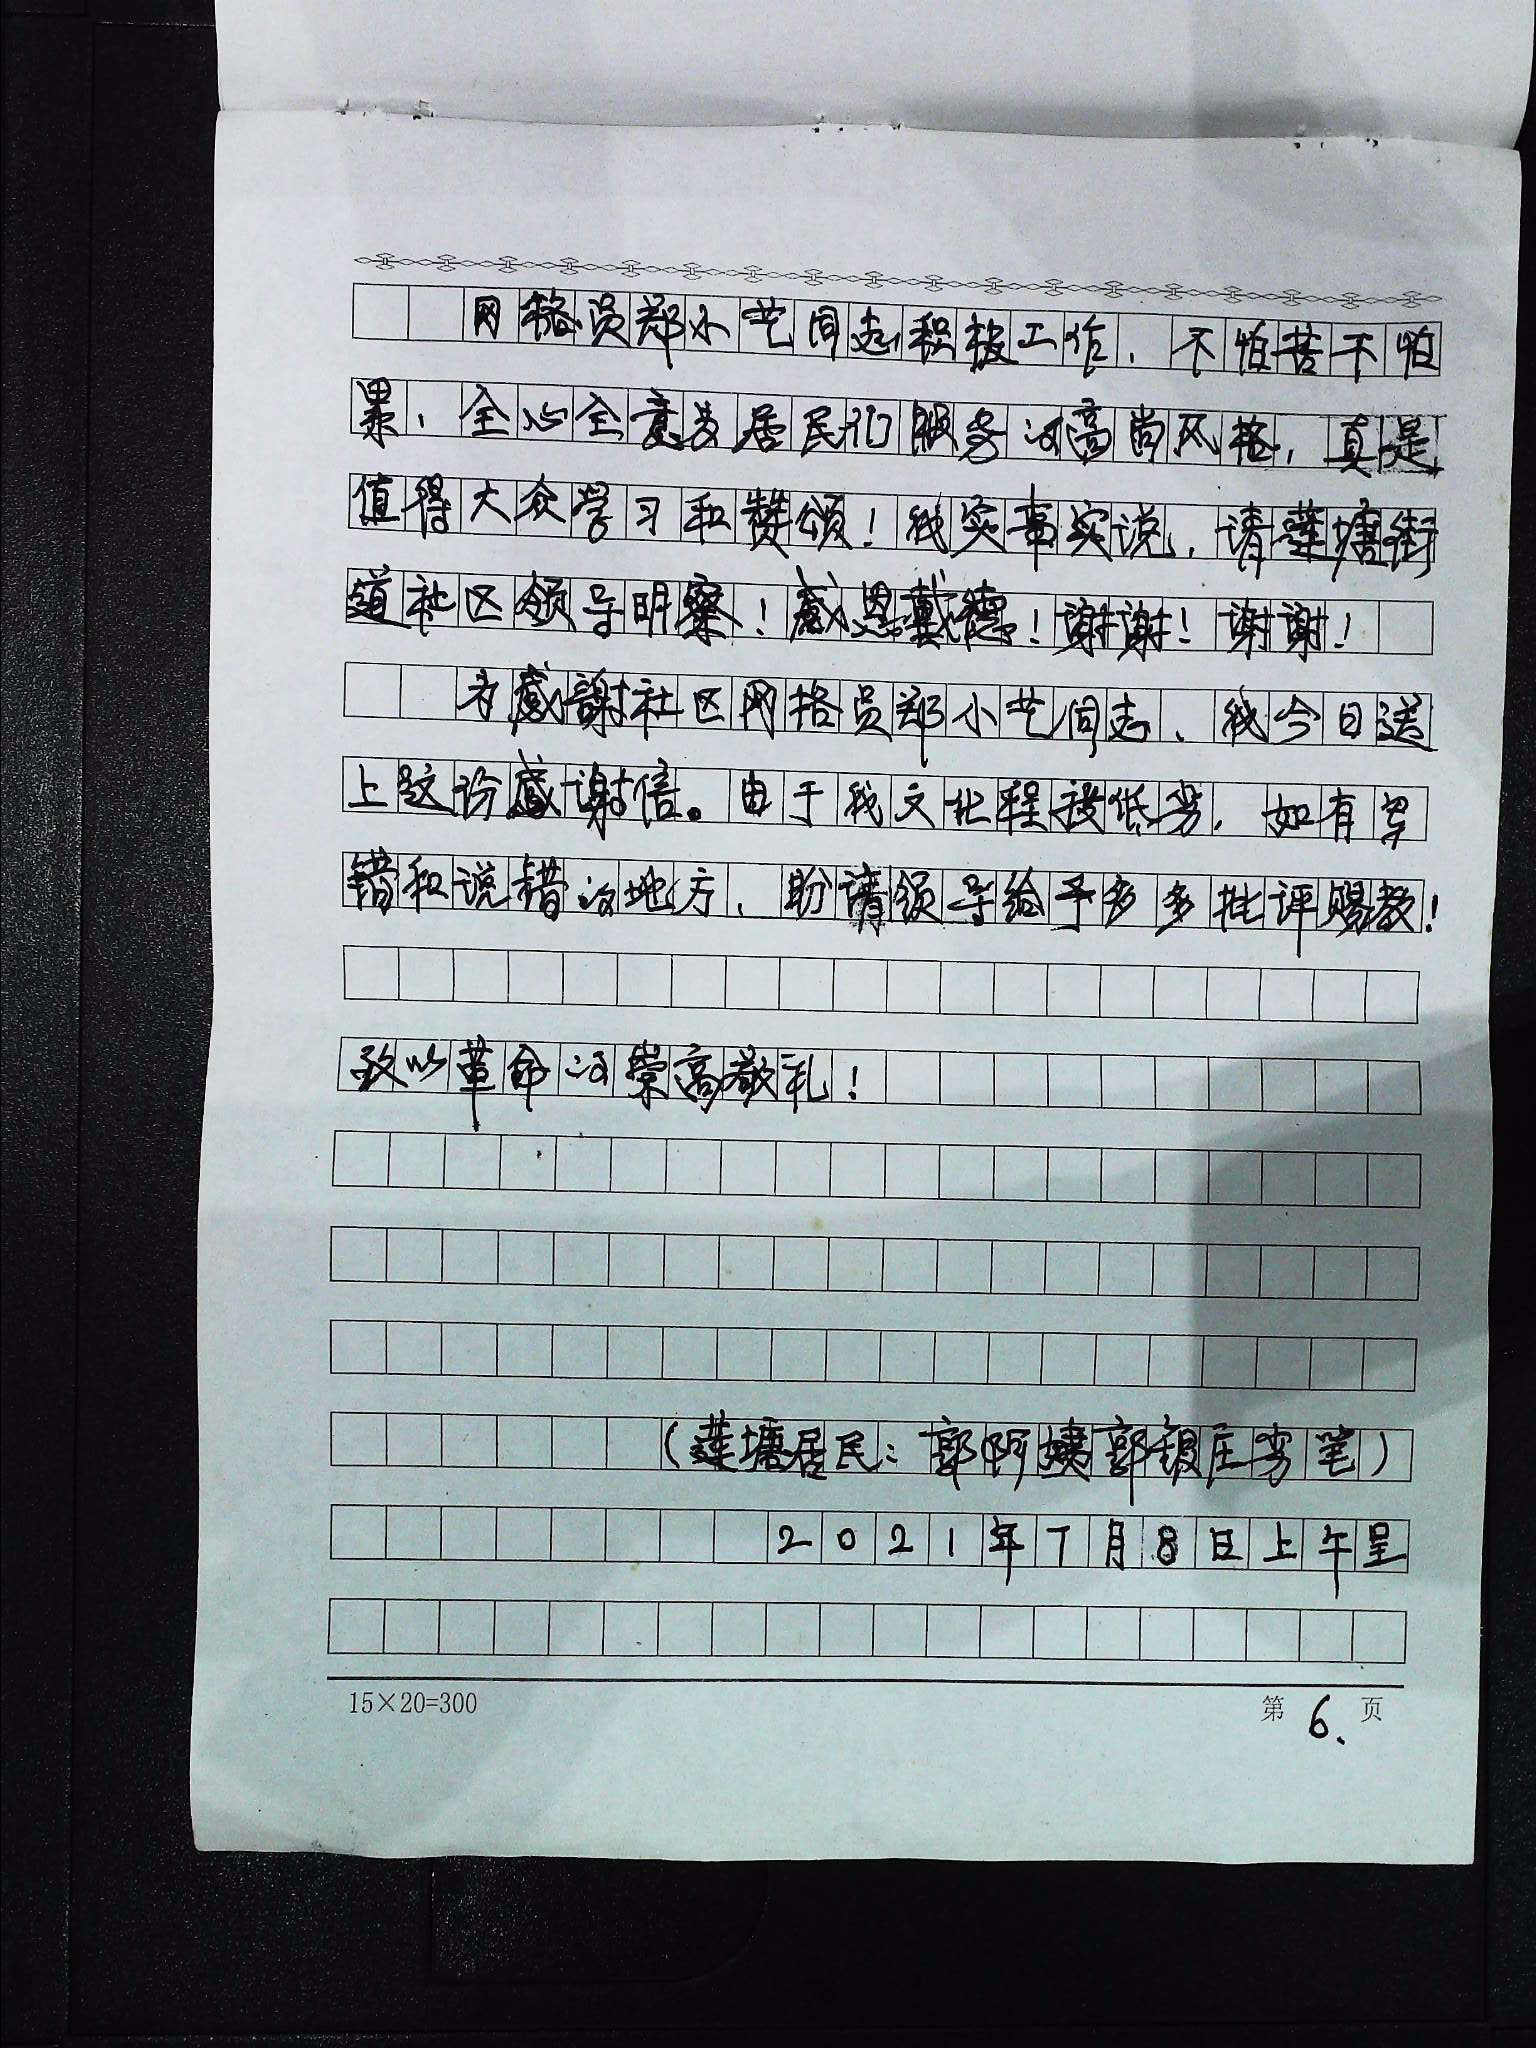 网格员郑小艺同志积极工作，不怕苦不怕
累，全心全意为居民们服务的高尚风格，真是
值得大众学习和赞颂！我实事实说，请莲塘街
道社区领导明察！感恩戴德！谢谢！谢谢！
为感謝社区网格员郑小艺同志，我今日送
上这份感谢信。由于我文化程投低劣，如有写
错和说错的地方，盼请领导给予多多批评赐教！
致以革命的崇高敬礼！
（莲塘居民：郭阿姨郭银庄劣笔）
2021年7月8日上午呈
15×20=300
第6.页